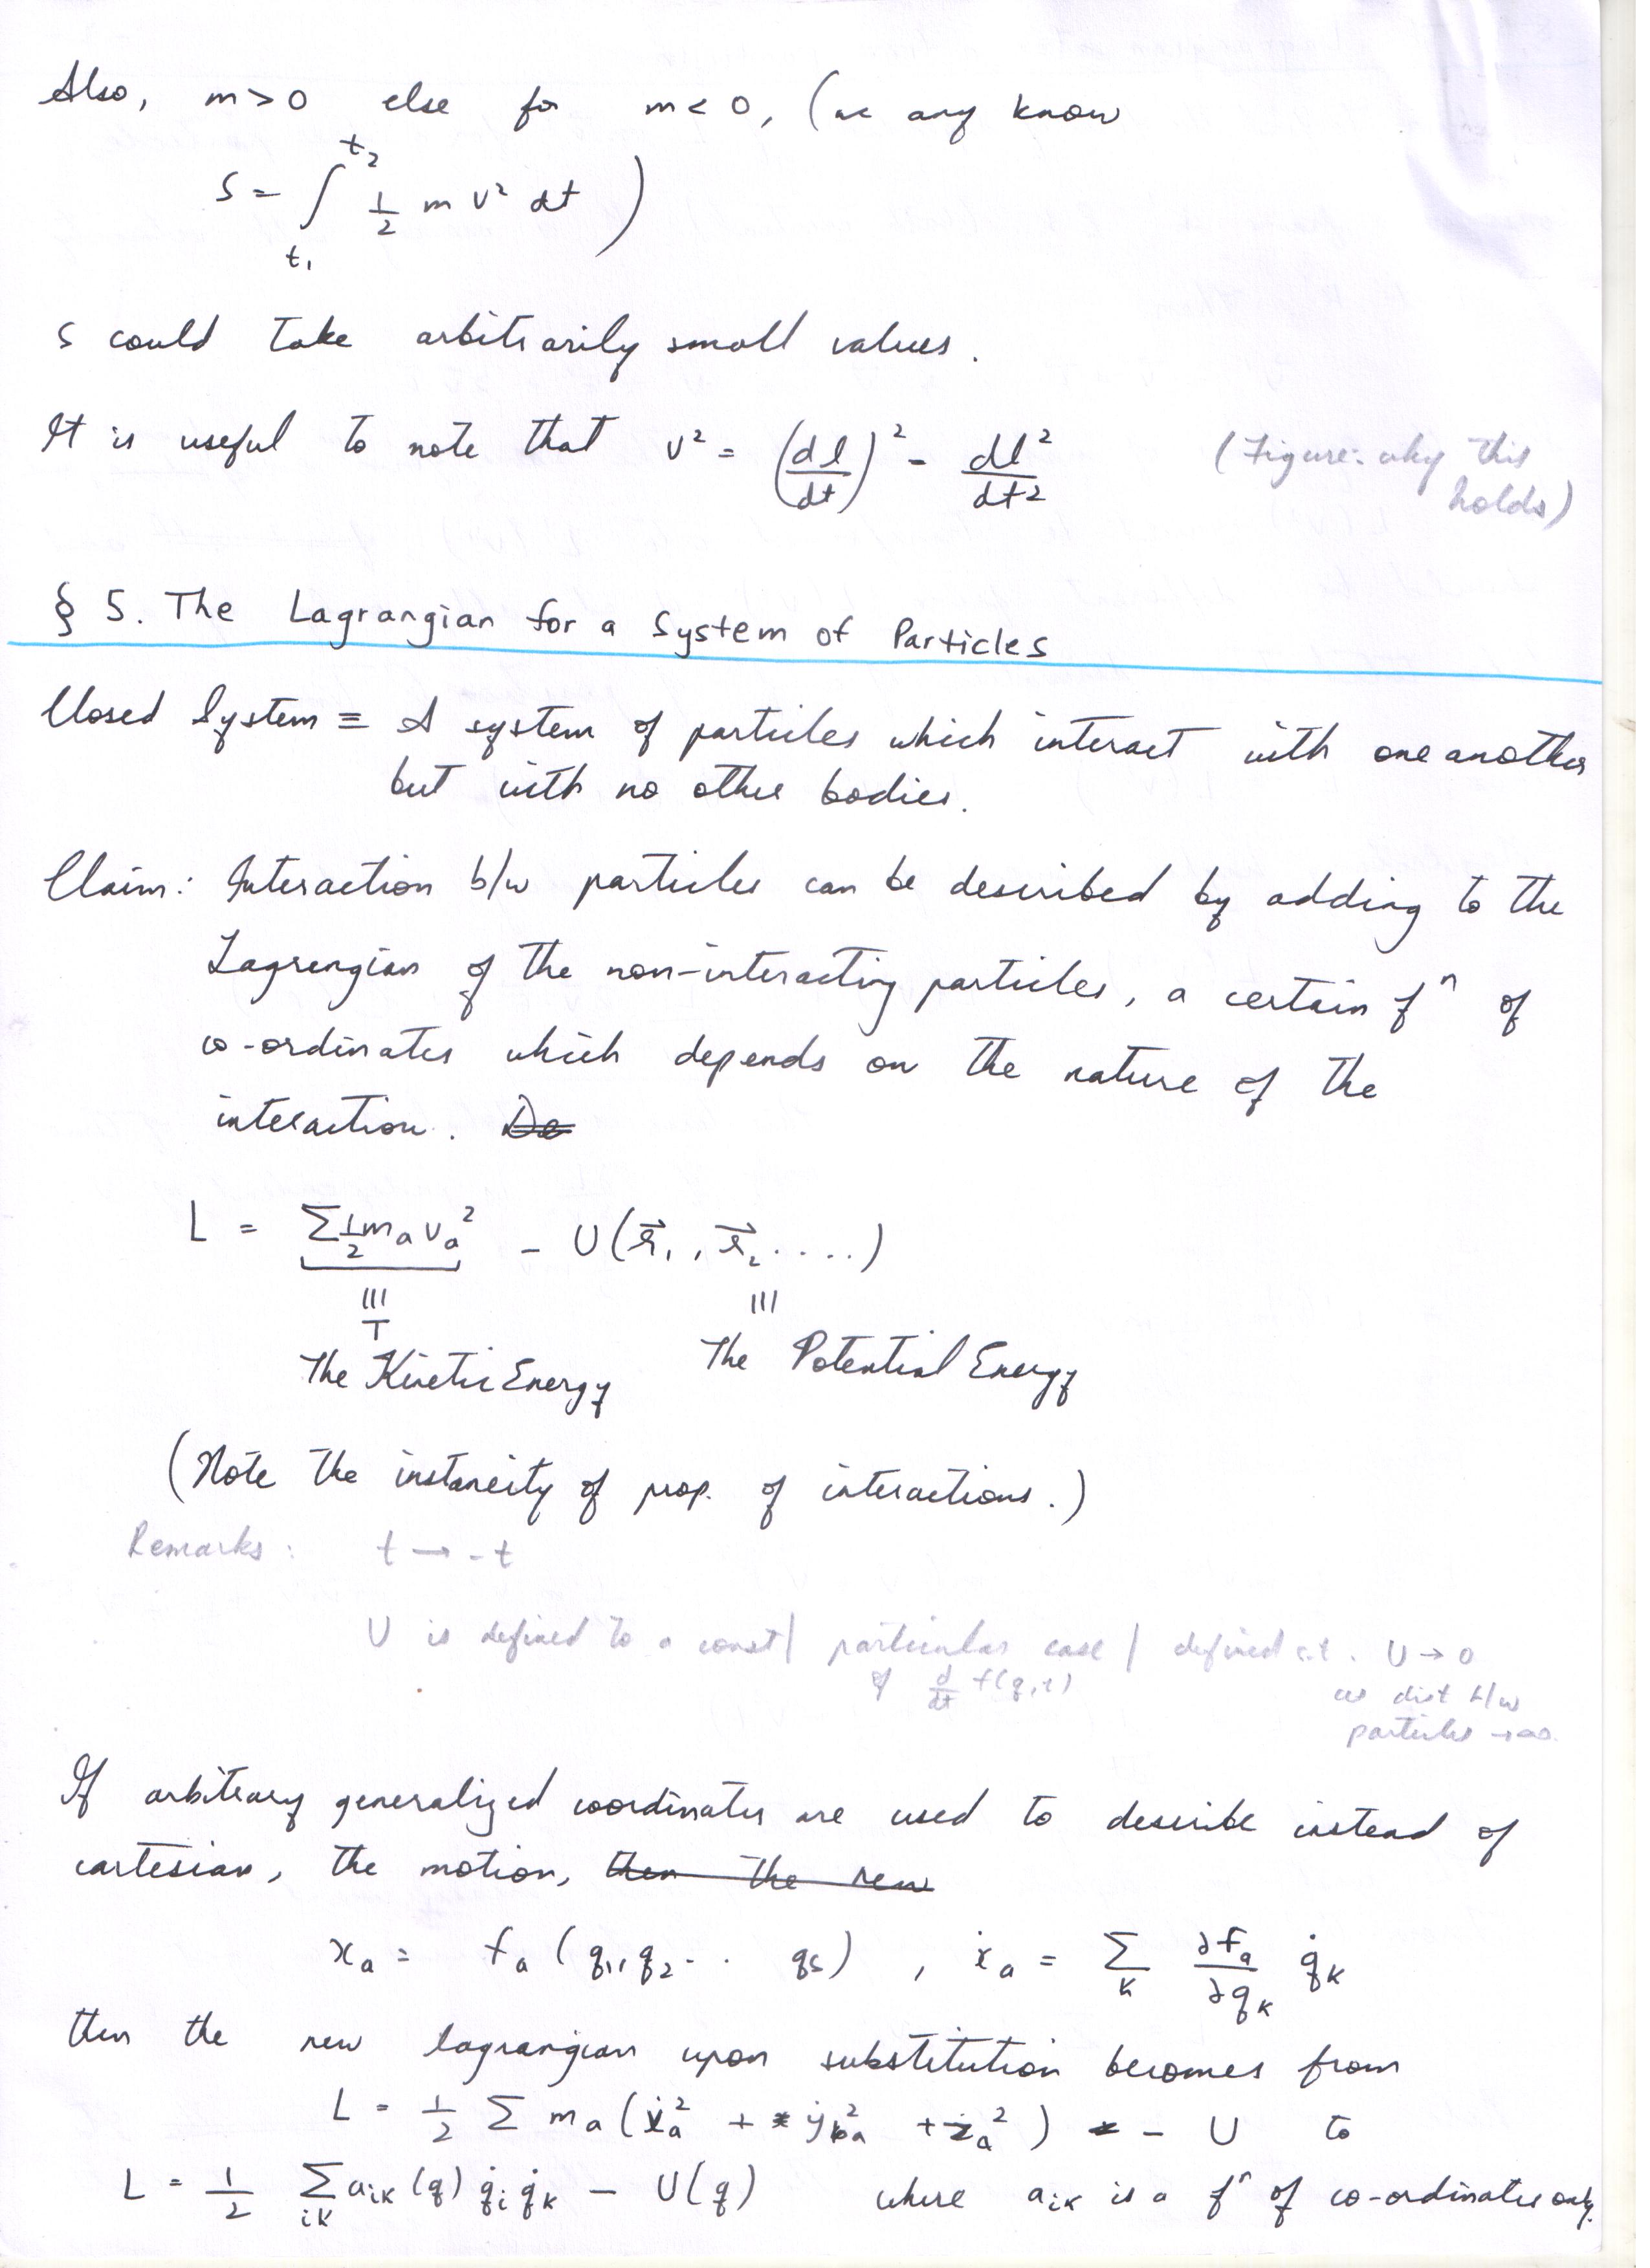 Also, m > 0 else for m < 0, (we any know
S = ∫_{t₁}^{t₂} 1/2 m v² dt )
S could take arbitrarily small values.
It is useful to note that v² = (dl/dt)² = dl²/dt² (Figure: why this holds)
§ 5. The Lagrangian for a System of Particles
Closed System ≡ A system of particles which interact with one another
but with no other bodies.
Claim: Interaction b/w particles can be described by adding to the
Lagrangian of the non-interacting particles, a certain fⁿ of
co-ordinates which depends on the nature of the
interaction. De
L = Σ 1/2 mₐ vₐ² - U(r⃗₁, r⃗₂ ....)
≡ T ≡
The Kinetic Energy The Potential Energy
(Note the instaneity of prop. of interactions.)
Remarks: t → -t
U is defined to a const / particular case / defined s.t. U → 0
of d/dt f(q,t) as dist b/w
particles → ∞.
If arbitrary generalized coordinates are used to describe instead of
cartesian, the motion, then the new
xₐ = fₐ (q₁, q₂ .. qs) , ẋₐ = Σ_k ∂fₐ/∂q_k q̇_k
then the new lagrangian upon substitution becomes from
L = 1/2 Σ mₐ (ẋₐ² + ẏₐ² + żₐ²) - U to
L = 1/2 Σ_{ik} a_{ik} (q) q̇_i q̇_k - U(q) where a_{ik} is a fⁿ of co-ordinates only.